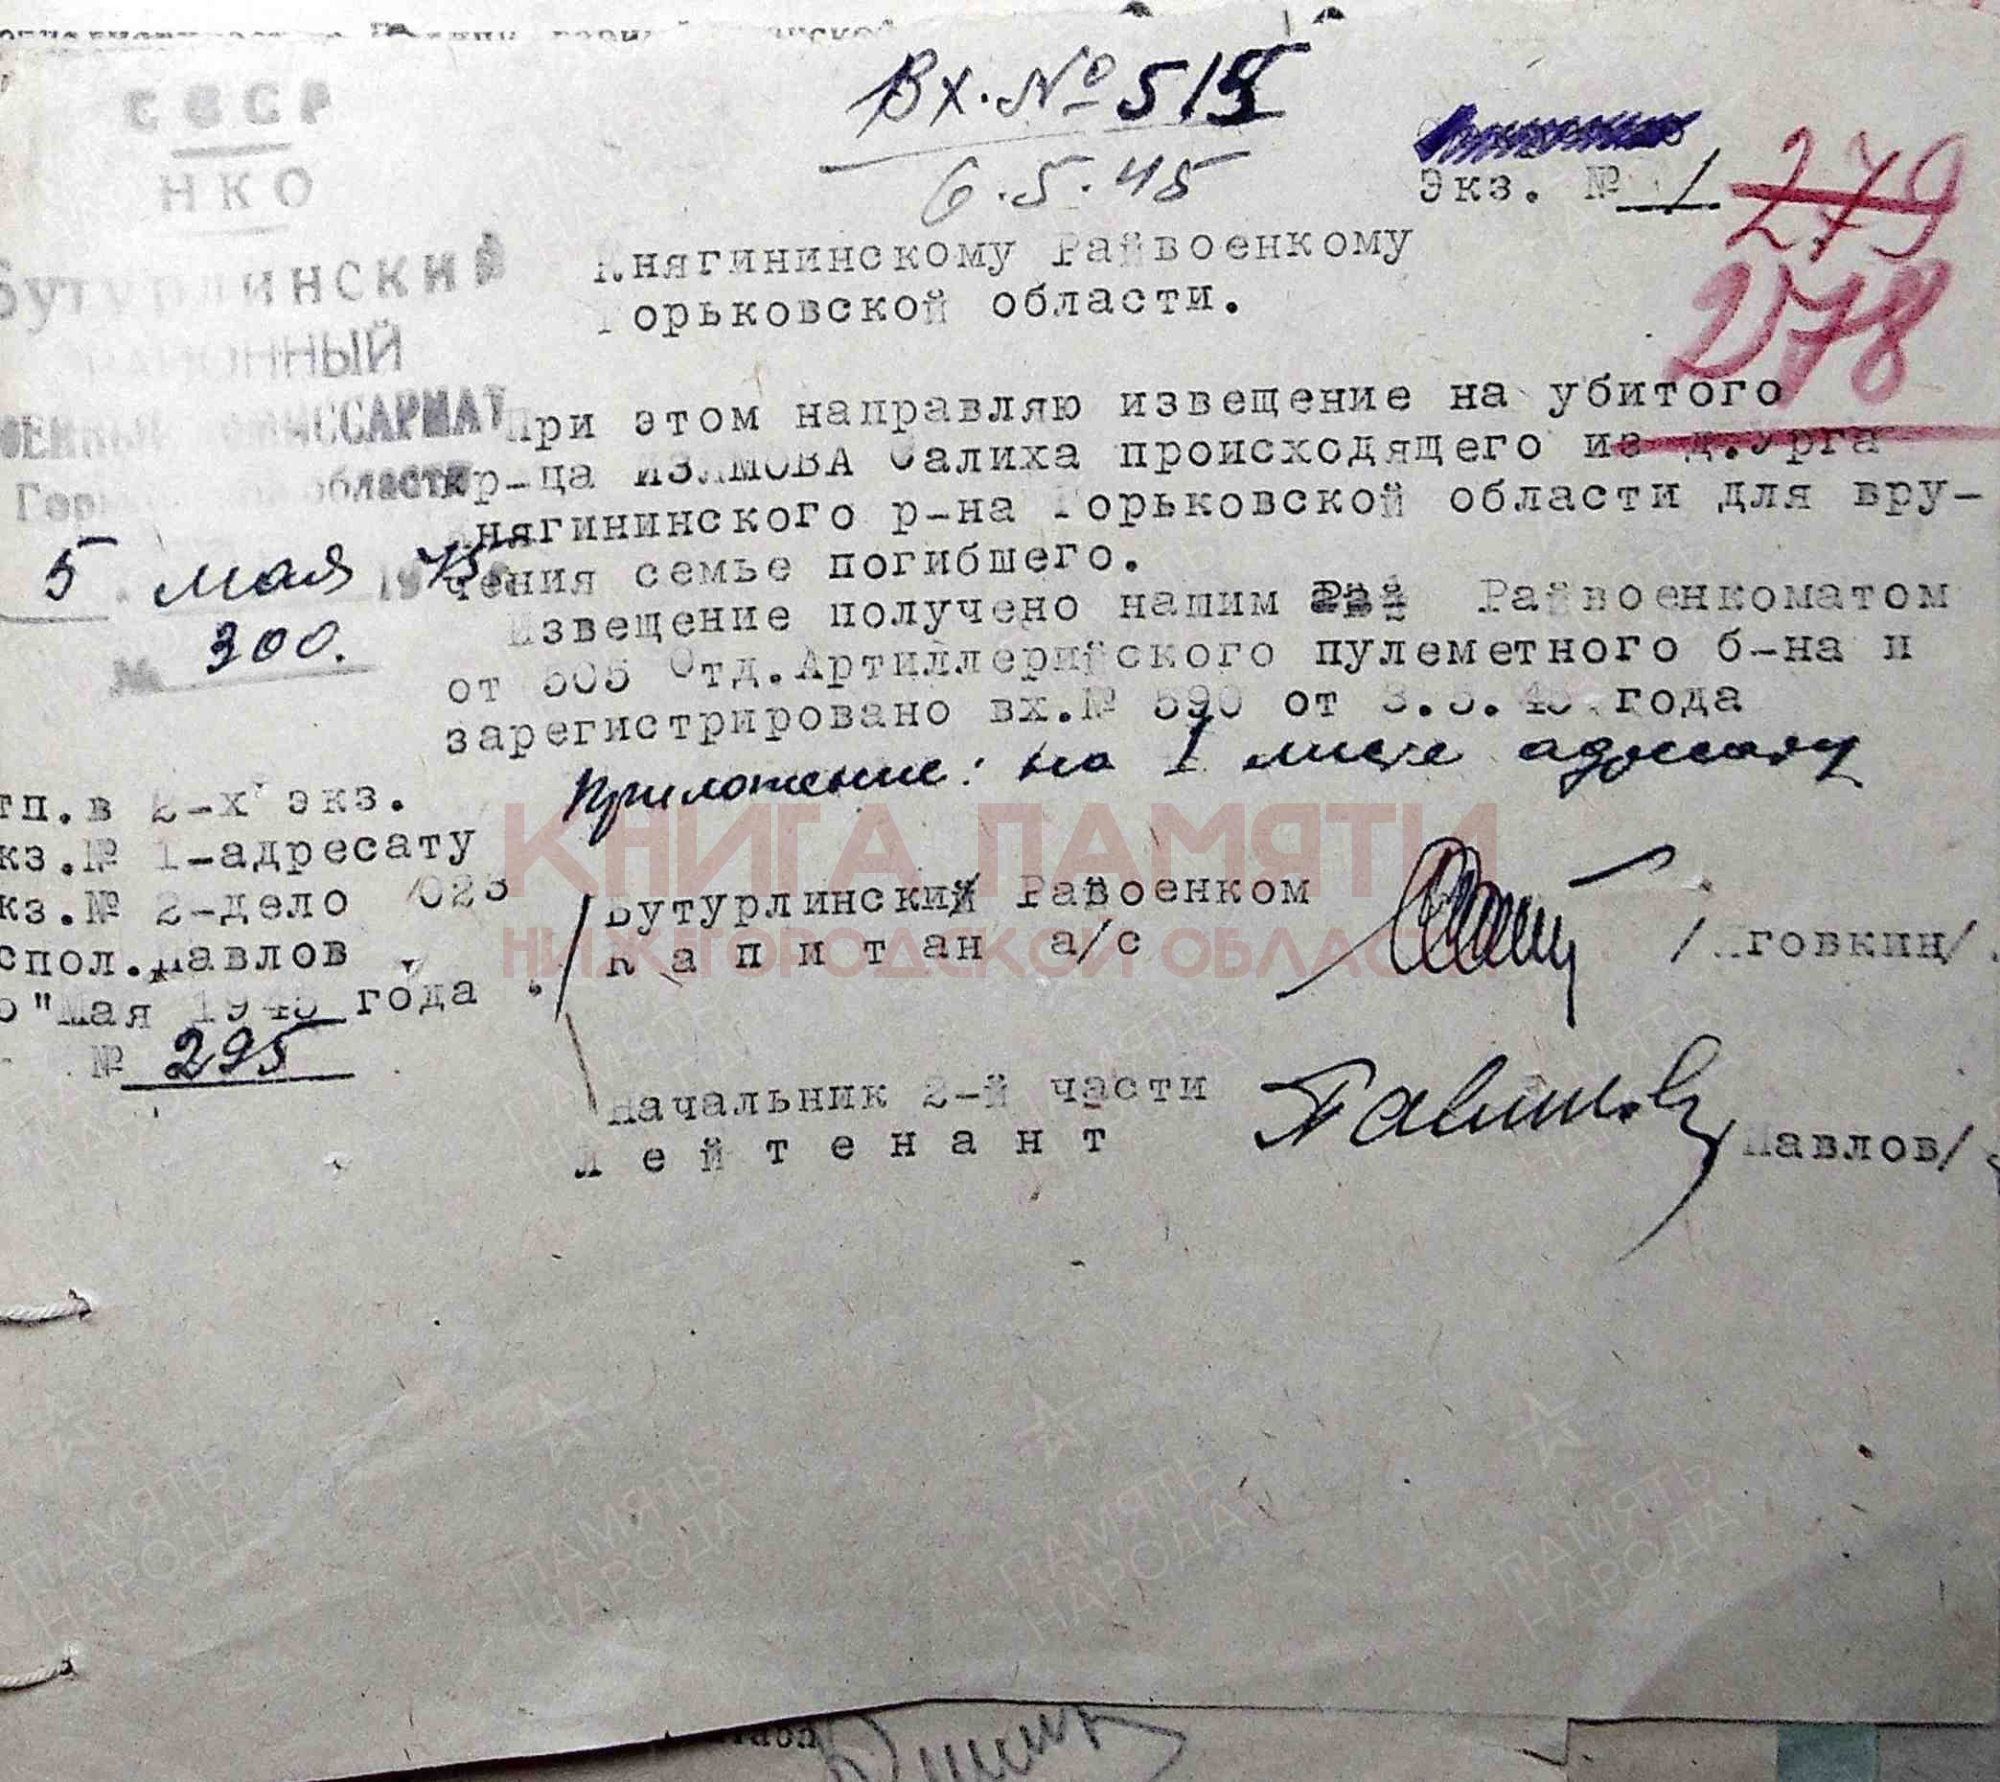 Вх. № 515
6.5.45
Экз. № 1.
279
278
СССР
НКО
БУТУРЛИНСКИЙ
РАЙОННЫЙ
ВОЕННЫЙ КОМИССАРИАТ
Горьковской области
5 мая 1945
№ 300.
Княгининскому Райвоенкому
Горьковской области.
При этом направляю извещение на убитого
кр-ца ИЗЛМОВА Салиха происходящего из д.Урга
Княгининского р-на Горьковской области для вру-
чения семье погибшего.
Извещение получено нашим Райвоенкоматом
от 505 Отд.Артиллерийского пулеметного б-на и
зарегистрировано вх.№ 590 от 3.5.45 года
Приложение: на 1 листе адресату
тп.в 2-х экз.
кз.№ 1-адресату
кз.№ 2-дело 023
спол.Павлов
"Мая 1945 года
№ 295
Бутурлинский Равоенком
Капитан а/с
говкин/.
Начальник 2-й части
Лейтенант
Павлов
Павлов/
КНИГА ПАМЯТИ
НИЖЕГОРОДСКОЙ ОБЛАСТИ
ПАМЯТЬ
НАРОДА
ПАМЯТЬ
НАРОДА
ПАМЯТЬ
НАРОДА
ПАМЯТЬ
НАРОДА